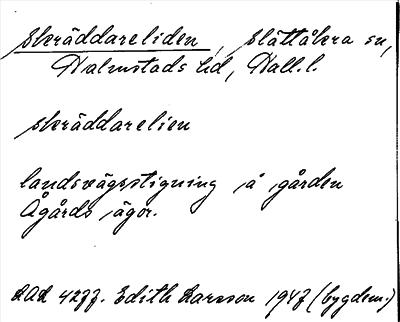 skräddareliden, Slättåkra sn,
Halmstads hd, Hall. l.
skräddarelien
landsvägsstigning å gården
Ågårds ägor.
Edith Larsson 1947 (bygdem.)